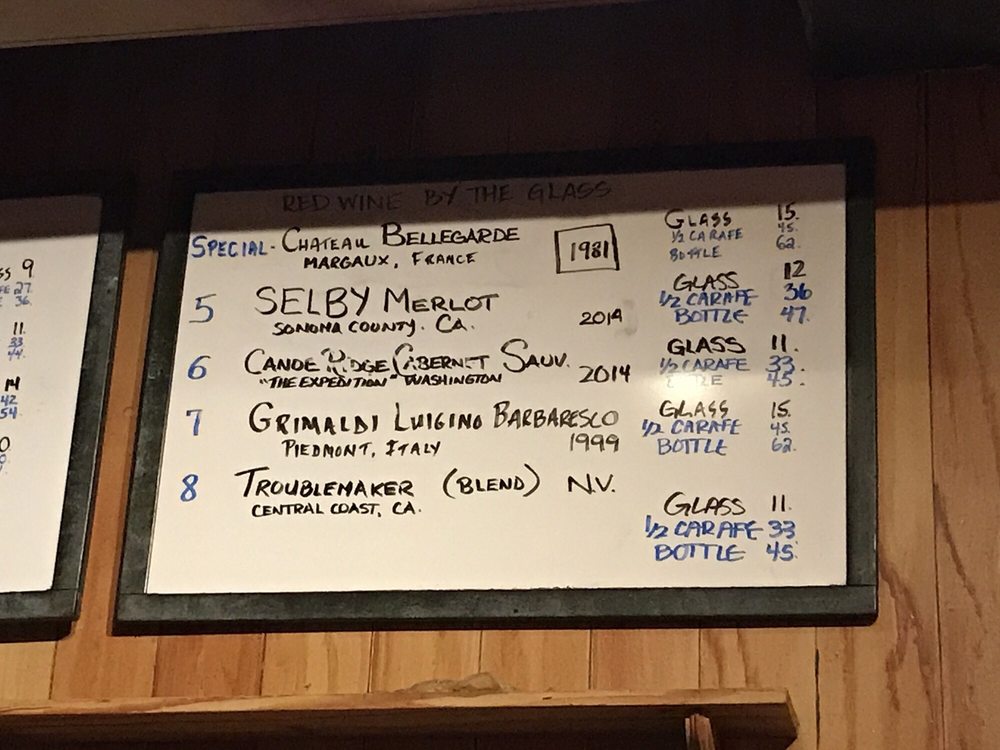 RED WINE BY THE GLASS
SPECIAL - CHATEAU BELLEGARDE 1981
MARGAUX, FRANCE
GLASS 15.
1/2 CARAFE 45.
BOTTLE 62.
5 SELBY MERLOT
SONOMA COUNTY. CA. 2014
GLASS 12
1/2 CARAFE 36
BOTTLE 47.
6 CANOE RIDGE CABERNET SAUV.
"THE EXPEDITION" WASHINGTON 2014
GLASS 11.
1/2 CARAFE 33.
45.
7 GRIMALDI LUIGINO BARBARESCO
PIEDMONT, ITALY 1999
GLASS 15.
1/2 CARAFE 45.
BOTTLE 62.
8 TROUBLEMAKER (BLEND) N.V.
CENTRAL COAST, CA.
GLASS 11.
1/2 CARAFE 33
BOTTLE 45.
9
27.
36.
11.
33
44.
14
42
54